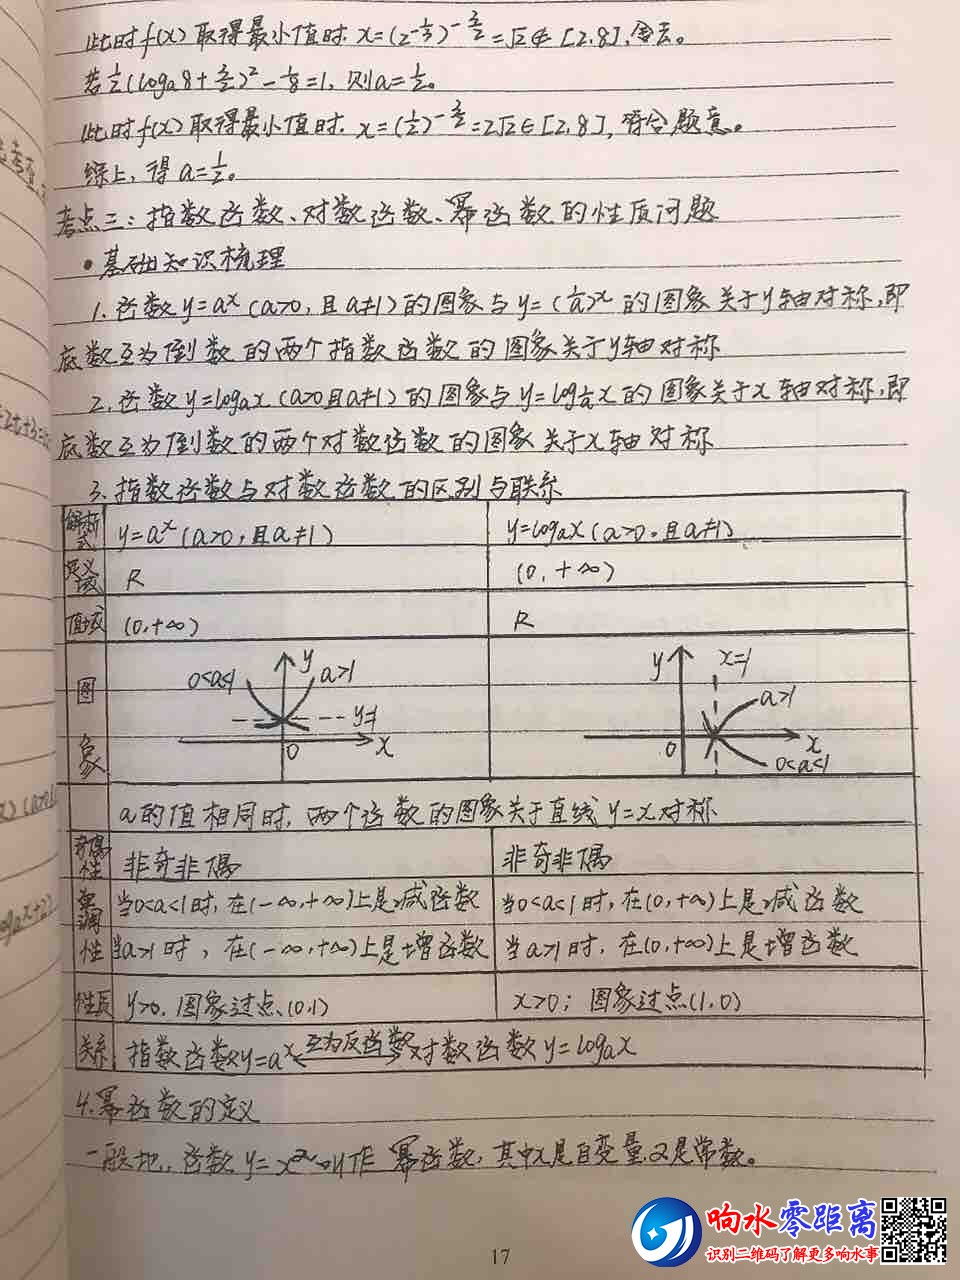 此时f(x)取得最小值时.x=(2^{-1/3})^{-3/2}=√2∉[2,8],舍去。
若½(logₐ8+3/2)²-⅛=1,则a=½。
此时f(x)取得最小值时.x=(½)^{-3/2}=2√2∈[2,8],符合题意。
综上,得a=½。
考点三:指数函数、对数函数、幂函数的性质问题
•基础知识梳理
1.函数y=aˣ(a>0,且a≠1)的图象与y=(1/a)ˣ的图象关于y轴对称,即
底数互为倒数的两个指数函数的图象关于y轴对称
2.函数y=logₐx(a>0且a≠1)的图象与y=log_{1/a}x的图象关于x轴对称,即
底数互为倒数的两个对数函数的图象关于x轴对称
3.指数函数与对数函数的区别与联系
解析式 y=aˣ(a>0,且a≠1) y=logₐx(a>0.且a≠1)
定义域 R (0,+∞)
值域 (0,+∞) R
图象
0<a<1 y a>1 y=1 0 x
y x=1 a>1 0 x 0<a<1
a的值相同时,两个函数的图象关于直线y=x对称
奇偶性 非奇非偶 非奇非偶
单调性 当0<a<1时,在(-∞,+∞)上是减函数 当0<a<1时,在(0,+∞)上是减函数
当a>1时,在(-∞,+∞)上是增函数 当a>1时,在(0,+∞)上是增函数
性质 y>0.图象过点(0,1) x>0;图象过点(1,0)
关系 指数函数y=aˣ 互为反函数 对数函数y=logₐx
4.幂函数的定义
一般地,函数y=x^α叫作幂函数,其中x是自变量α是常数。
17
响水零距离
识别二维码了解更多响水事